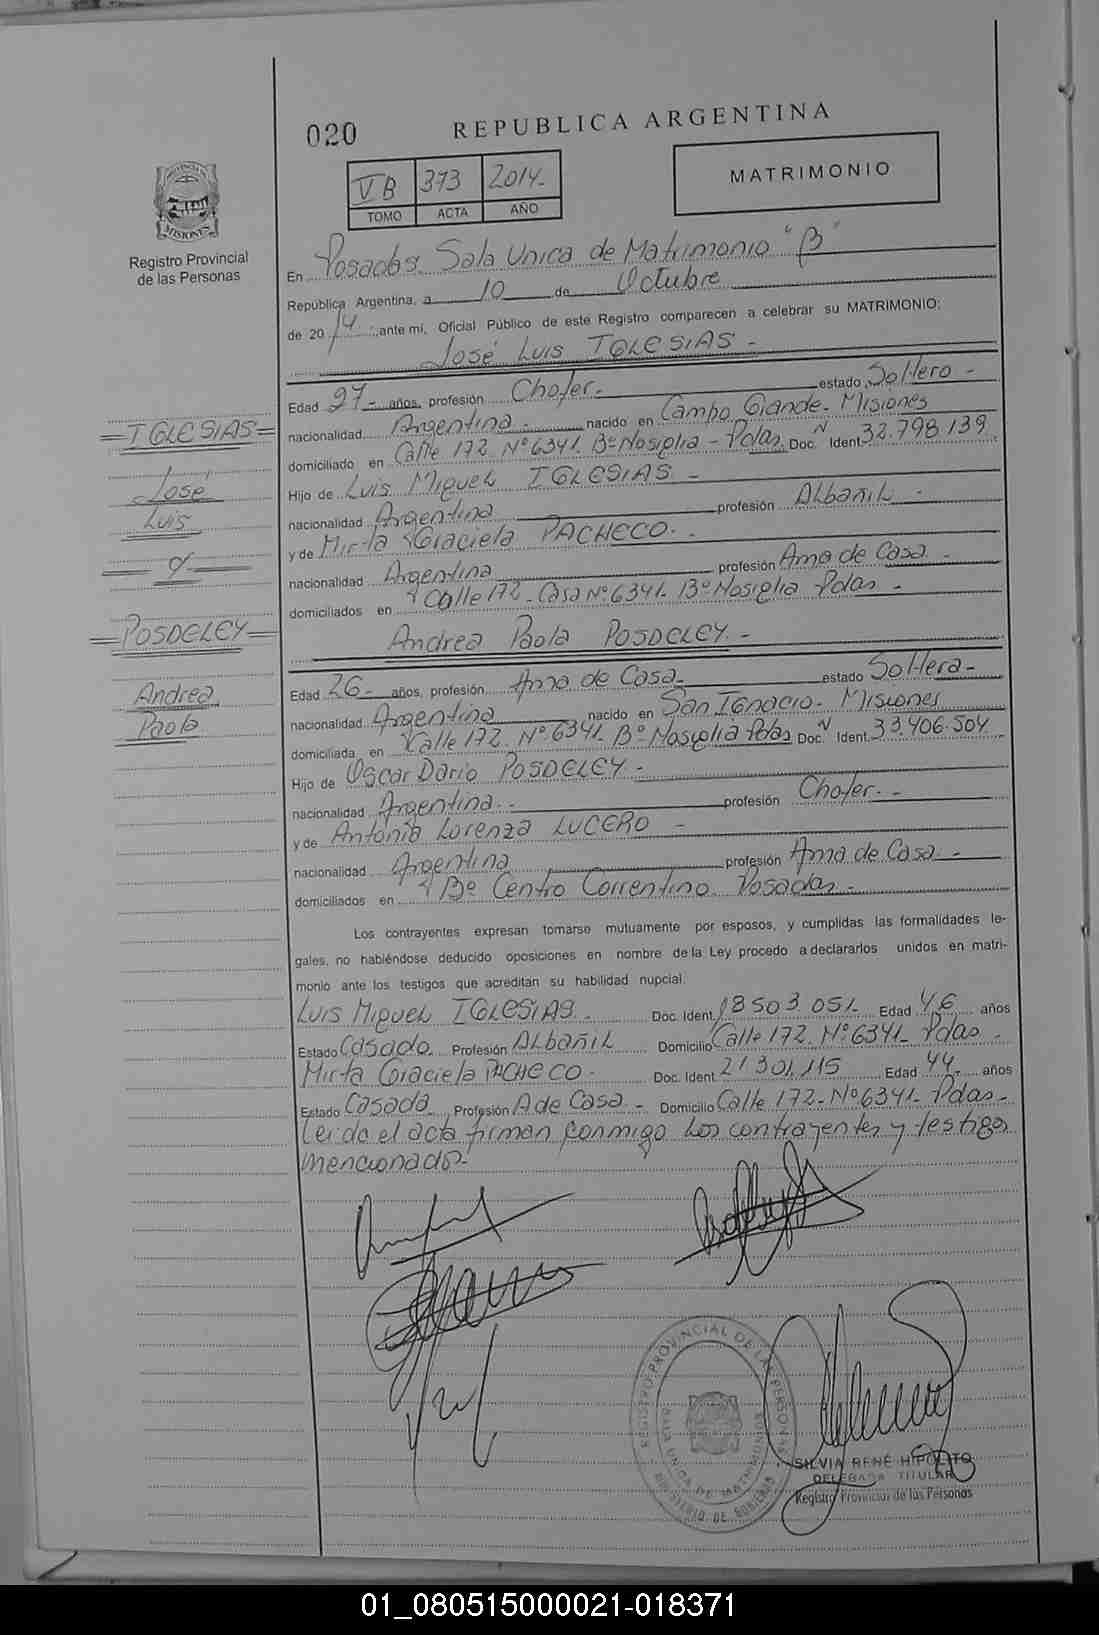 020
REPUBLICA ARGENTINA
VB 373 2014.-
TOMO ACTA AÑO
MATRIMONIO
PROVINCIA
MISIONES
Registro Provincial
de las Personas
En Posadas. Sala Unica de Matrimonio "B"
República Argentina, a 10 de Octubre
de 2014. ; ante mí, Oficial Público de este Registro comparecen a celebrar su MATRIMONIO:
José Luis IGLESIAS -
Edad 27- años, profesión Chofer.- estado Soltero -
nacionalidad Argentina.- nacido en Campo Grande- Misiones
domiciliado en Calle 172 Nº 6341. Bº Nosiglia - Pdas. Doc. N Ident. 32.798.139
Hijo de Luis Miguel IGLESIAS -
nacionalidad Argentina profesión Albañil -
y de Mirta Graciela PACHECO. -
nacionalidad Argentina profesión Ama de Casa -
domiciliados en Calle 172- Casa Nº 6341- Bº Nosiglia Pdas -
Andrea Paola POSDELEY. -
Edad 26- años, profesión Ama de Casa.- estado Soltera-
nacionalidad Argentina nacido en San Ignacio. Misiones
domiciliada en Calle 172. Nº 6341. Bº Nosiglia Pdas Doc. N Ident. 33.406.504
Hijo de Oscar Dario POSDELEY -
nacionalidad Argentina.- profesión Chofer.-
y de Antonia Lorenza LUCERO -
nacionalidad Argentina profesión Ama de Casa.-
domiciliados en Bº Centro Correntino. Posadas-
Los contrayentes expresan tomarse mutuamente por esposos, y cumplidas las formalidades le-
gales, no habiéndose deducido oposiciones en nombre de la Ley procedo a declararlos unidos en matri-
monio ante los testigos que acreditan su habilidad nupcial.
Luis Miguel IGLESIAS- Doc. Ident. 18503.051. Edad 46 años
Estado Casado Profesión Albañil Domicilio Calle 172. Nº 6341- Pdas -
Mirta Graciela PACHECO- Doc. Ident. 21301.115 Edad 44 años
Estado Casada Profesión A de Casa - Domicilio Calle 172- Nº 6341- Pdas-
Leida el acta firman conmigo los contrayentes y testigos
mencionado-
IGLESIAS
José
Luis
POSDELEY
Andrea
Paola
REGISTRO PROVINCIAL DE LAS PERSONAS
SALA UNICA DE MATRIMONIOS
MINISTERIO DE GOBIERNO
SILVIA RENÉ HIPÓLITO
DELEGADA TITULAR
Registro Provincial de las Personas
01_080515000021-018371